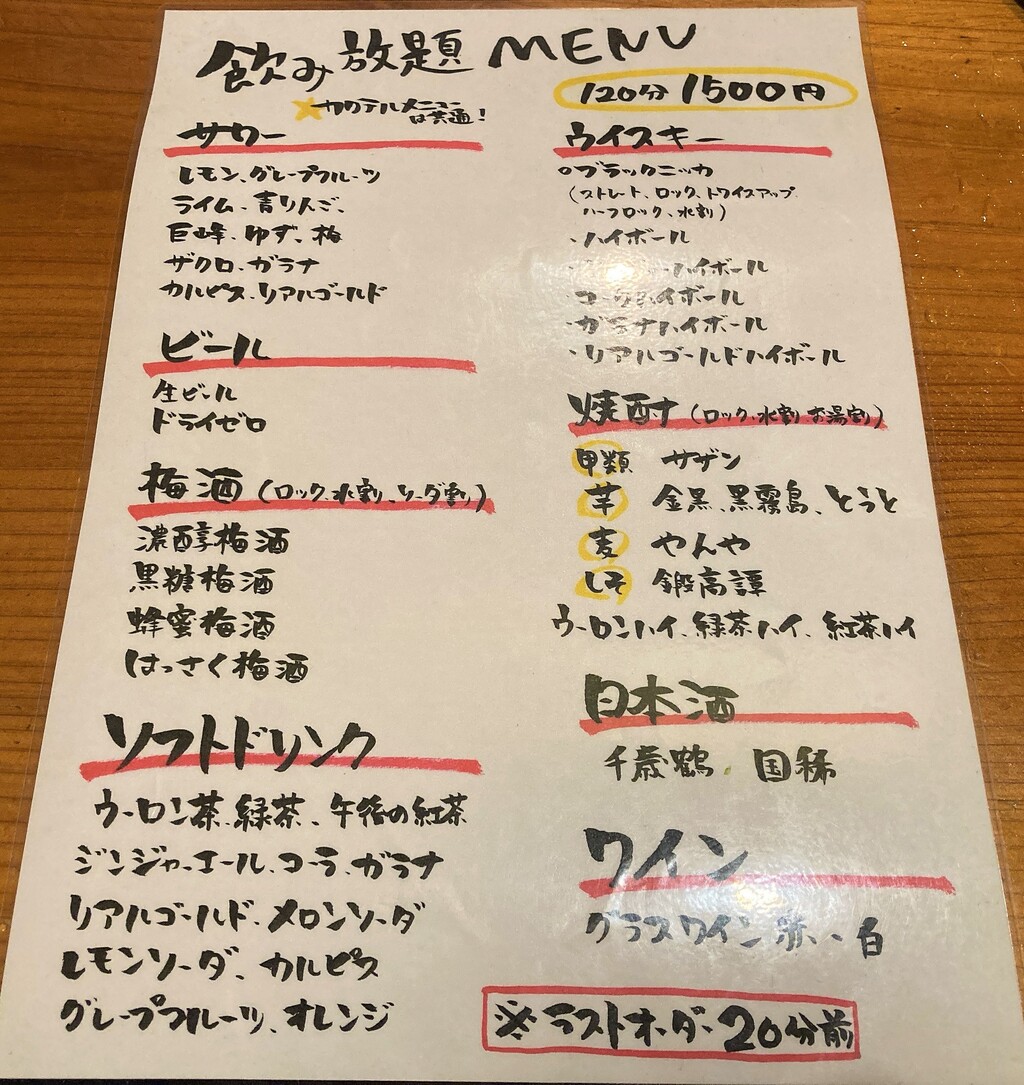 飲み放題 MENU
120分 1500円
カクテルメニュー
は共通!
サワー
レモン、グレープフルーツ
ライム、青りんご、
巨峰、ゆず、梅
ザクロ、ガラナ
カルピス、リアルゴールド
ビール
生ビール
ドライゼロ
梅酒(ロック、水割、ソーダ割)
濃醇梅酒
黒糖梅酒
蜂蜜梅酒
はっさく梅酒
ソフトドリンク
ウーロン茶、緑茶、午後の紅茶
ジンジャーエール、コーラ、ガラナ
リアルゴールド、メロンソーダ
レモンソーダ、カルピス
グレープフルーツ、オレンジ
ウイスキー
○ブラックニッカ
(ストレート、ロック、トワイスアップ
ハーフロック、水割)
・ハイボール
ハイボール
・コークハイボール
・ガラナハイボール
・リアルゴールドハイボール
焼酎(ロック、水割、お湯割)
甲類 サザン
芋 金黒、黒霧島、とうと
麦 やんや
しそ 鍛高譚
ウーロンハイ、緑茶ハイ、紅茶ハイ
日本酒
千歳鶴、国稀
ワイン
グラスワイン 赤、・白
※ラストオーダー20分前